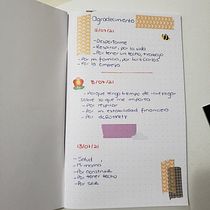 Agradecimiento
11/07/21
- Despertarme
- Respirar, por la vida
- Por tener un techo, trabajo
- Por mi familia, por
- Por la empleo
5/07/21
- Porque tengo tiempo de
sobre lo que me importa
- Por respirar
- Por mi estabilidad financiera
- Por
13/07/21
- Salud
- Mi
- Por
- Por tener techo
- Por